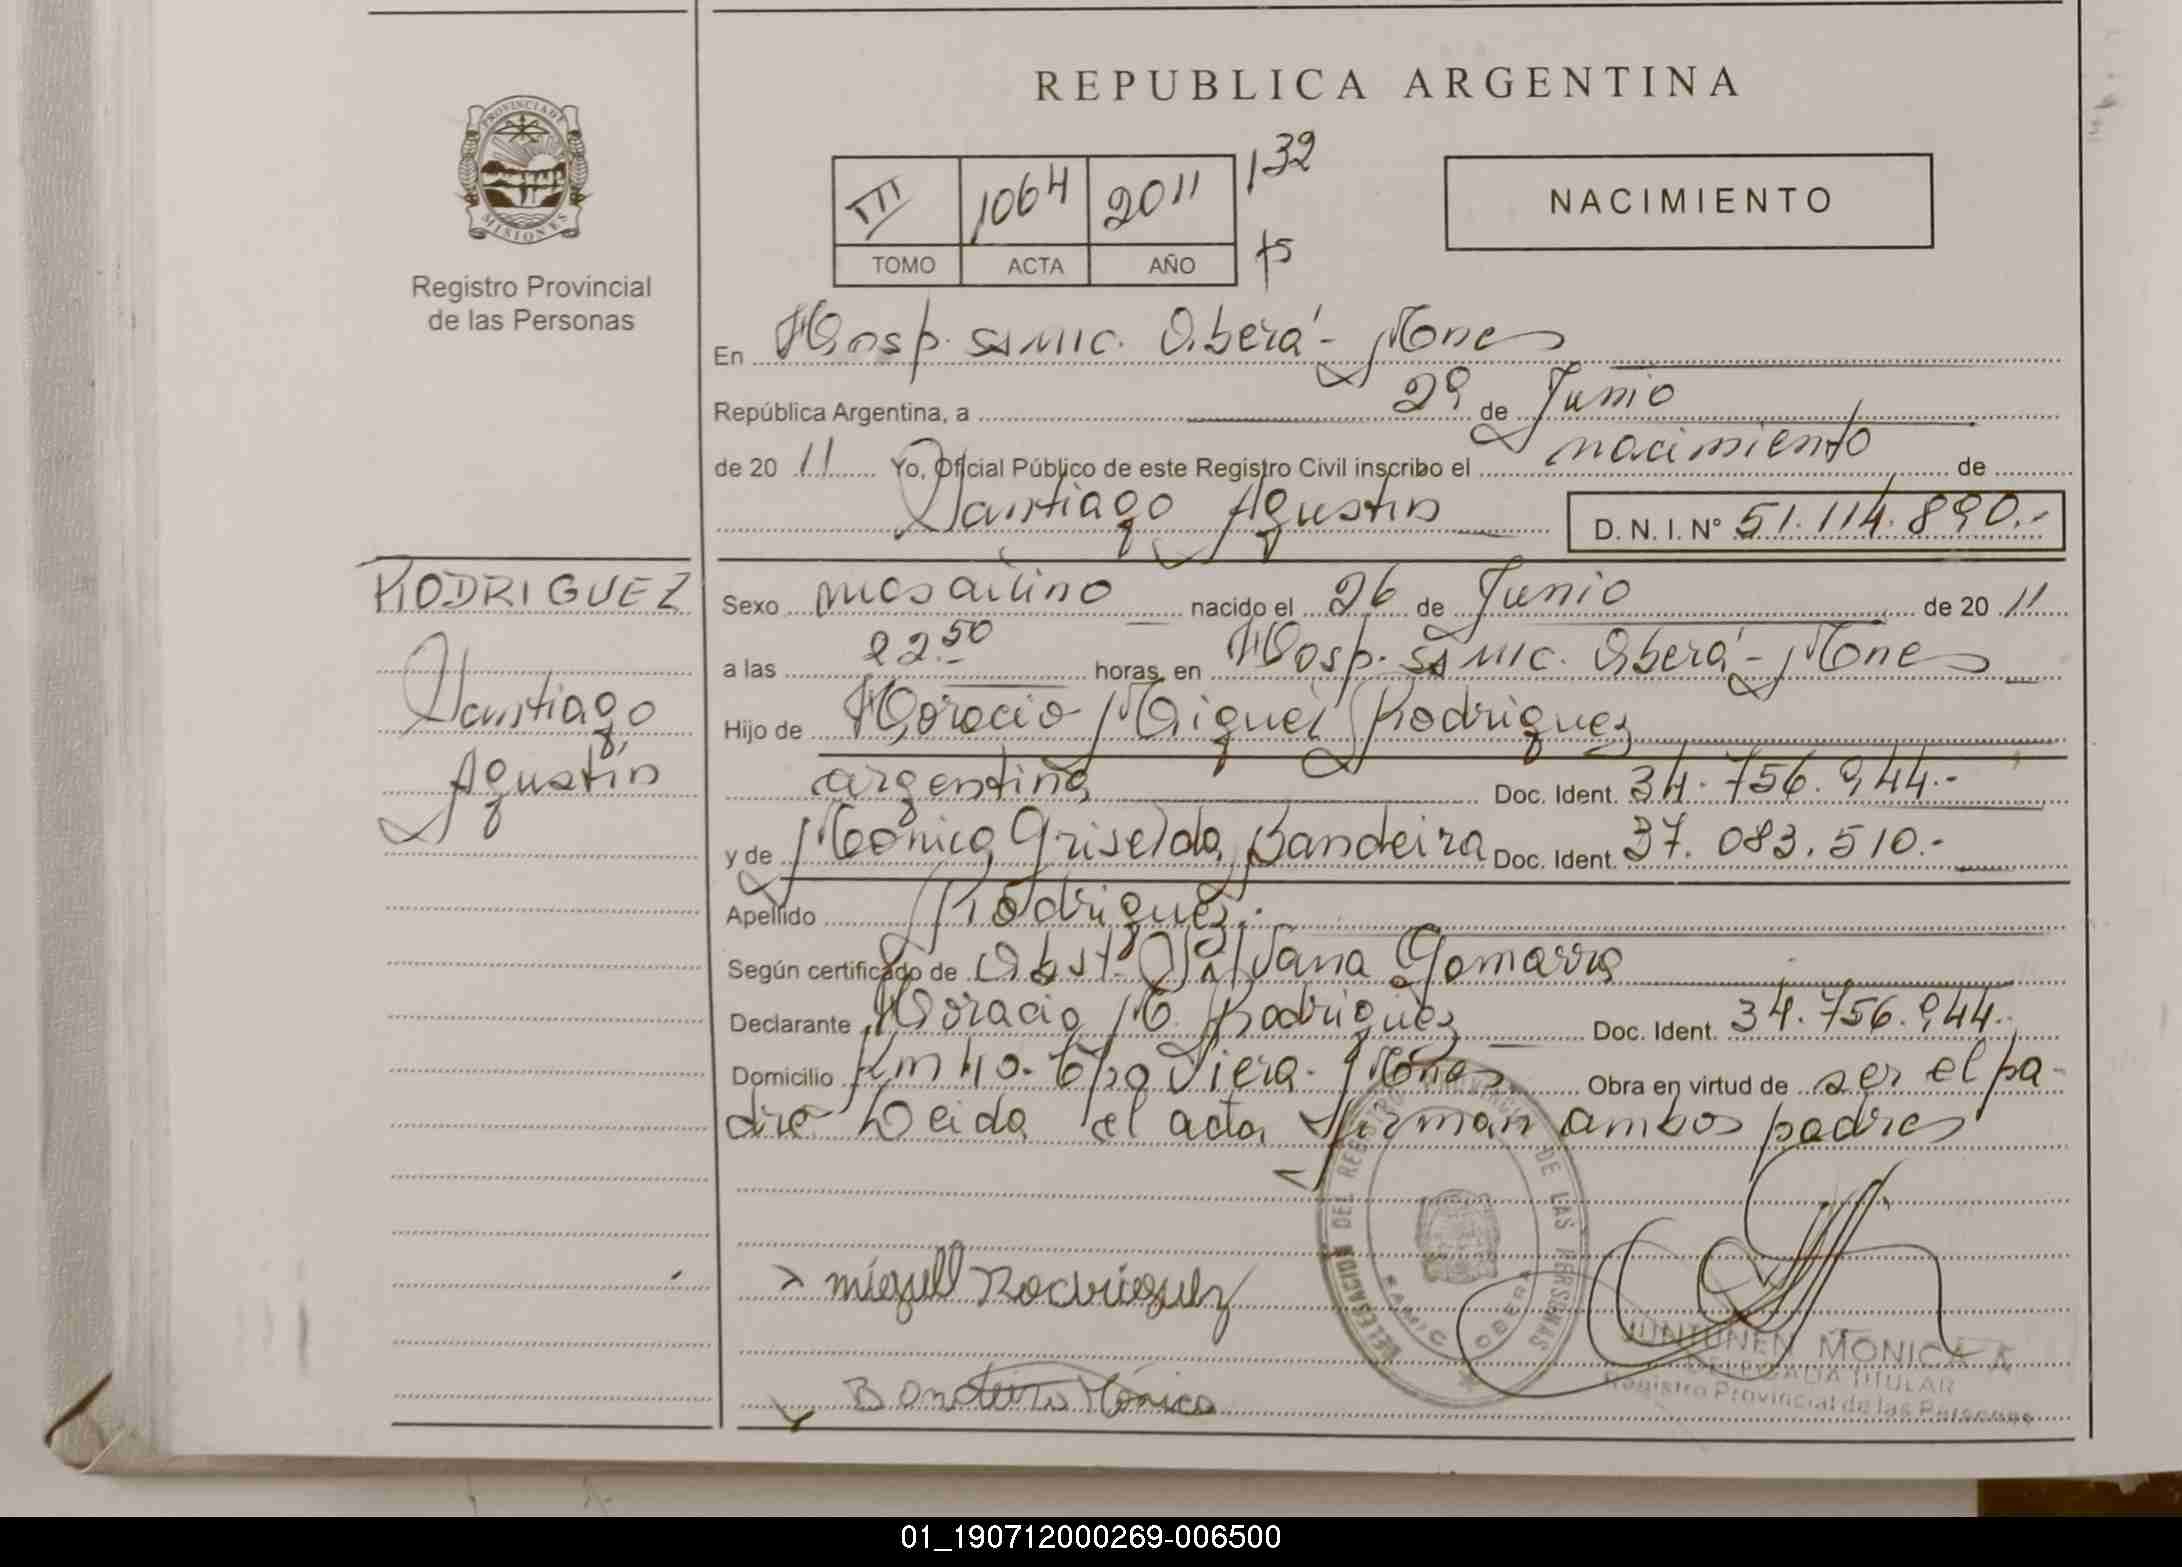 REPUBLICA ARGENTINA
PROVINCIA DE
MISIONES
Registro Provincial
de las Personas
III 1064 2011 132
TOMO ACTA AÑO
NACIMIENTO
En Hosp. SAMIC. Oberá - Mnes
República Argentina, a 29 de Junio
de 20 11 Yo, Oficial Público de este Registro Civil inscribo el nacimiento de
Santiago Agustín D. N. I. Nº 51.114.890.-
RODRIGUEZ
Santiago
Agustín
Sexo masculino nacido el 26 de Junio de 20 11
a las 22.50 horas, en Hosp. SAMIC. Oberá - Mnes
Hijo de Horacio Miguel Rodriguez
argentina Doc. Ident. 34.756.944.-
y de Mónica Griselda Bandeira Doc. Ident. 37.083.510.-
Apellido Rodriguez.
Según certificado de Obst. Silvana Gomarra
Declarante Horacio M. Rodriguez Doc. Ident. 34.756.944.
Domicilio Km 40. Cpo Viera. Mnes Obra en virtud de ser el pa-
dre Leida el acta firman ambos padres
DELEGACION DEL REGISTRO PROVINCIAL DE LAS PERSONAS
SAMIC OBERA
miguell Rodrieguez
Bandeira Mónica
JUNTUNEN MONICA
DELEGADA TITULAR
Registro Provincial de las Personas
01_190712000269-006500